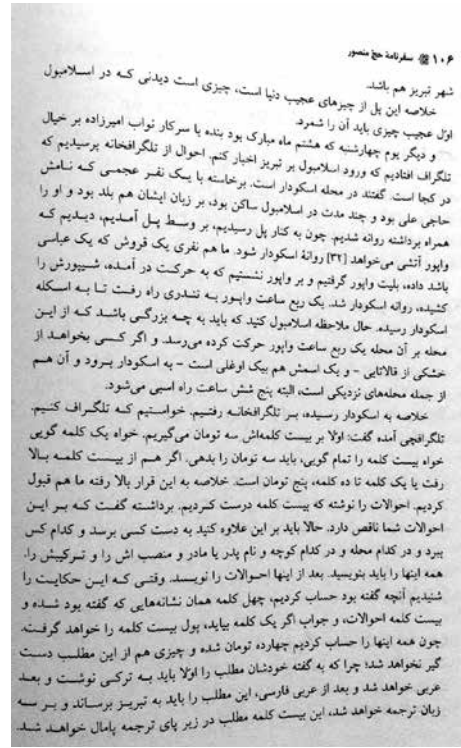 ۱۰۶ سفرنامهٔ حج منصور
شهر تبریز هم باشد.
خلاصه این پل از چیزهای عجیب دنیا است، چیزی است دیدنی که در اسلامبول
اوّل عجیب چیزی باید آن را شمرد.
و دیگر یوم چهارشنبه که هشتم ماه مبارک بود بنده با سرکار نواب امیرزاده بر خیال
تلگراف افتادیم که ورود اسلامبول بر تبریز اخبار کنم. احوال از تلگرافخانه پرسیدیم که
در کجا است. گفتند در محله اسکودار است. برخاسته با یک نفر عجمی که نامش
حاجی علی بود و چند مدت در اسلامبول ساکن بود، بر زبان ایشان هم بلد بود و او را
همراه برداشته روانه شدیم. چون به کنار پل رسیدیم، بر وسط پل آمدیم، دیدیم که
واپور آتشی می‌خواهد [۳۲] روانهٔ اسکودار شود. ما هم نفری یک قروش که یک عباسی
باشد داده، بلیت واپور گرفتیم و بر واپور نشستیم که به حرکت در آمده، شیپورش را
کشیده، روانه اسکودار شد. یک ربع ساعت واپور به تندری راه رفت تا به اسکله
اسکودار رسیده. حال ملاحظه اسلامبول کنید که باید به چه بزرگی باشد که از این
محله بر آن محله یک ربع ساعت واپور حرکت کرده می‌رسد. و اگر کسی بخواهد از
خشکی از قالاتایی - و یک اسمش هم بیک اوغلی است - به اسکودار برود و آن هم
از جمله محله‌های نزدیکی است، البته پنج شش ساعت راه اسبی می‌شود.
خلاصه به اسکودار رسیده، بر تلگرافخانه رفتیم. خواستیم که تلگراف کنیم.
تلگرافچی آمده گفت: اولا بر بیست کلمه‌اش سه تومان می‌گیریم. خواه یک کلمه گویی
خواه بیست کلمه را تمام گویی، باید سه تومان را بدهی. اگر هم از بیست کلمه بالا
رفت یا یک کلمه تا ده کلمه، پنج تومان است. خلاصه به این قرار بالا رفته ما هم قبول
کردیم. احوالات را نوشته که بیست کلمه درست کردیم. برداشته گفت که بر این
احوالات شما ناقص دارد. حالا باید بر این علاوه کنید به دست کسی برسد و کدام کس
ببرد و در کدام محله و در کدام کوچه و نام پدر یا مادر و منصب اش را و ترکیبش را.
همه اینها را باید بنویسید. بعد از اینها احوالات را نویسد. وقتی که این حکایت را
شنیدیم آنچه گفته بود حساب کردیم، چهل کلمه همان نشانه‌هایی که گفته بود شده و
بیست کلمه احوالات، و جواب اگر یک کلمه بیاید، پول بیست کلمه را خواهد گرفت.
چون همه اینها را حساب کردیم چهارده تومان شده و چیزی هم از این مطلب دست
گیر نخواهد شد؛ چرا که به گفته خودشان مطلب را اوّلا باید به ترکی نوشت و بعد
عربی خواهد شد و بعد از عربی فارسی، این مطلب را باید به تبریز برساند و بر سه
زبان ترجمه خواهد شد، این بیست کلمه مطلب در زیر پای ترجمه پامال خواهد شد.